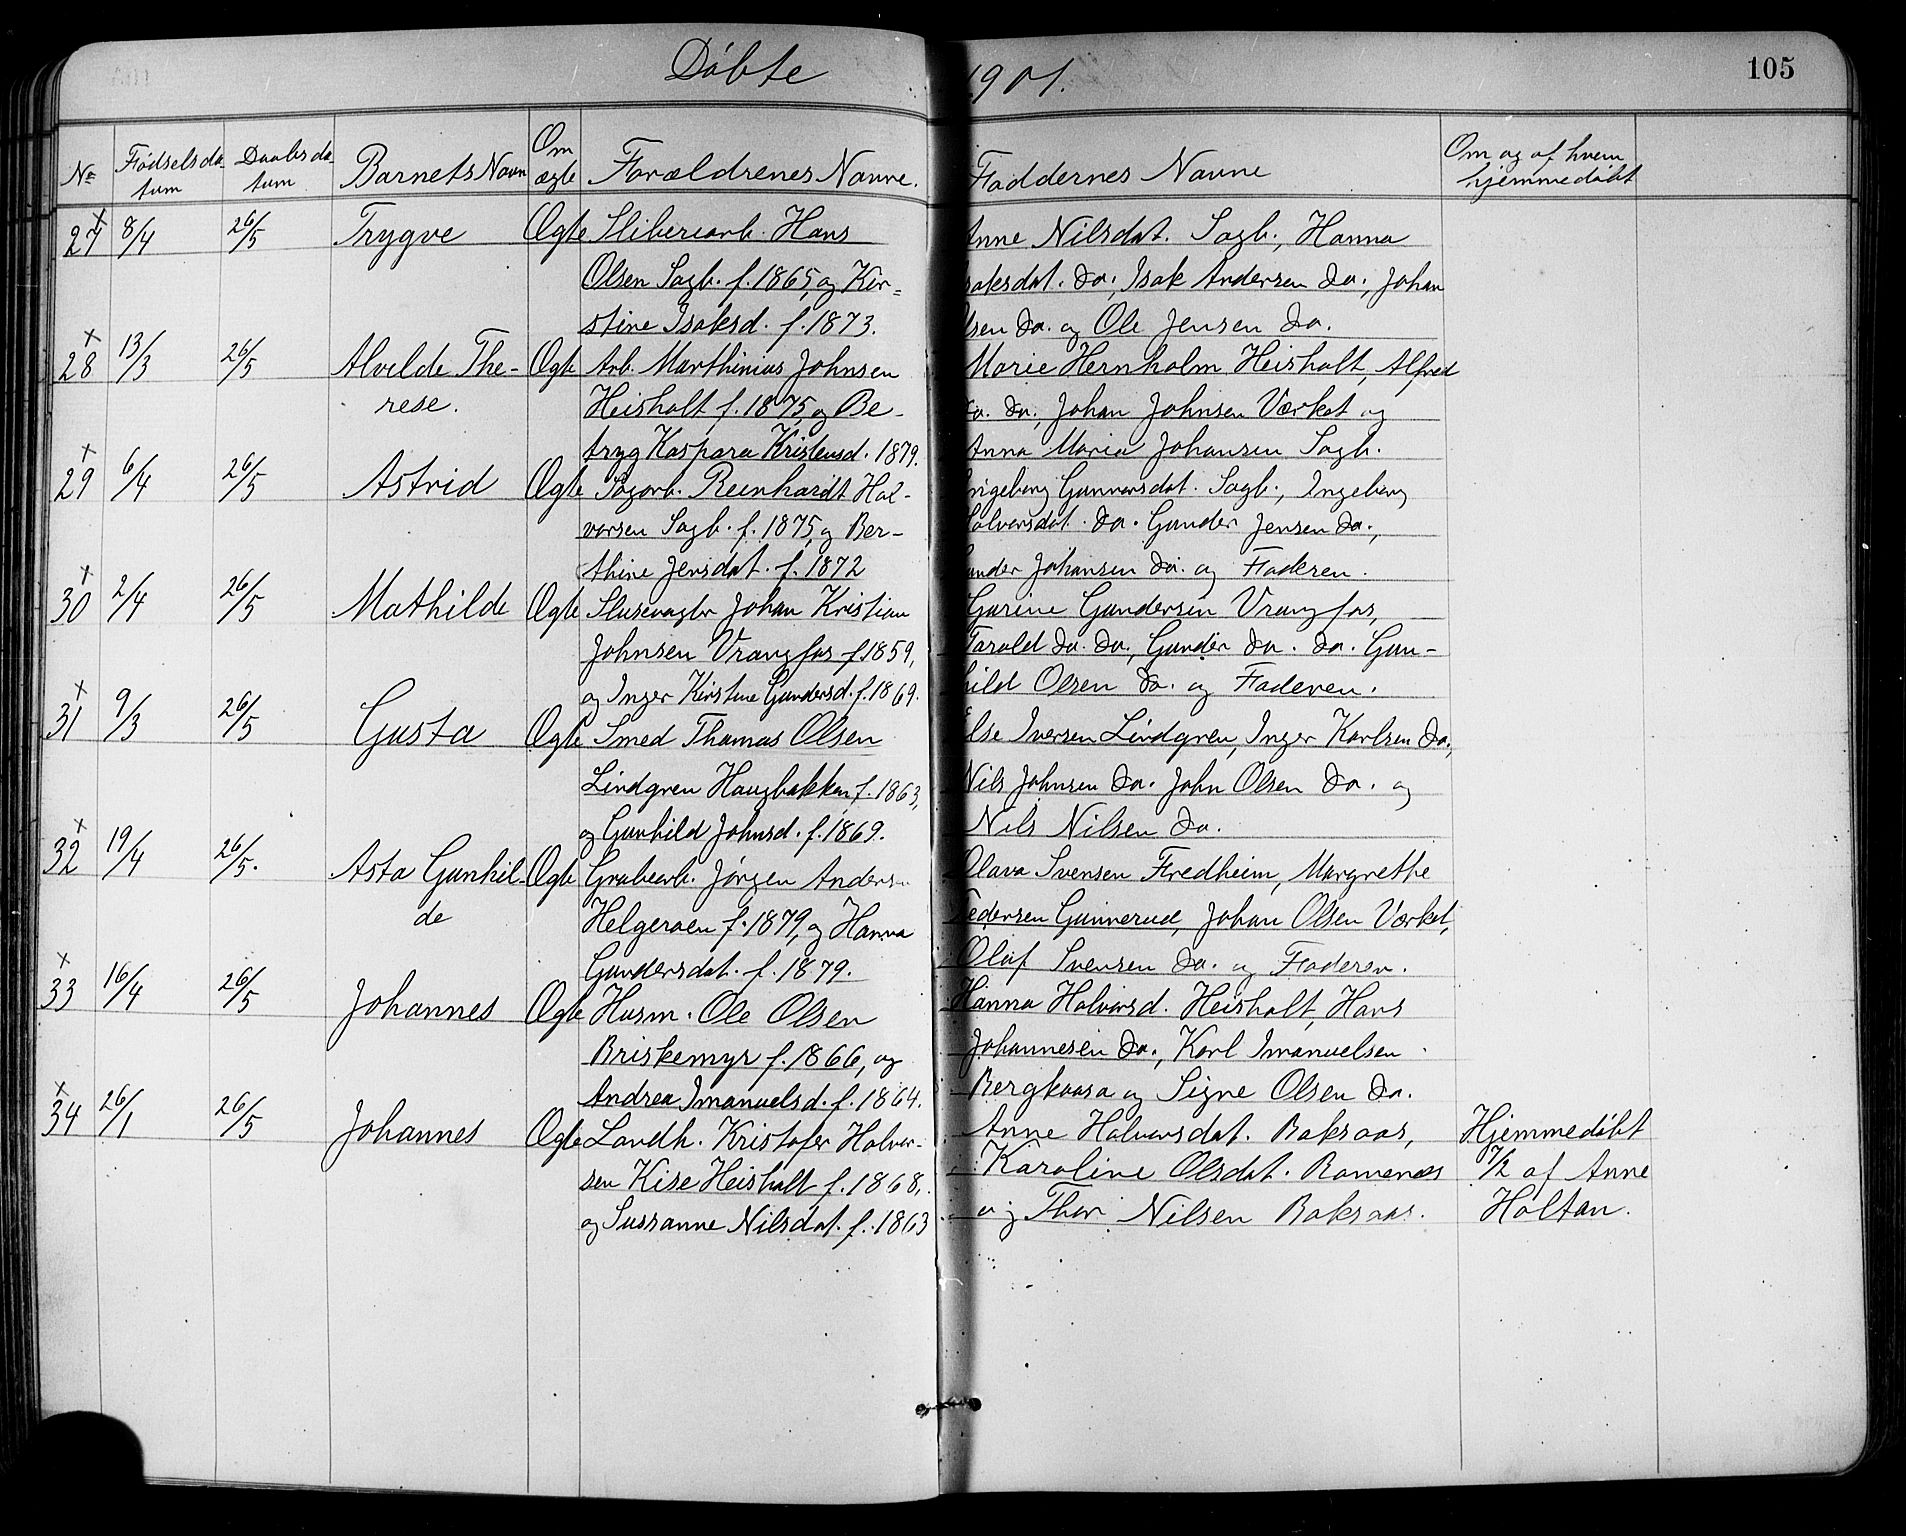 Døbte 1901. 105
No Fødselsda- Daabsda- Barnets Navn Om Forældrenes Navne. Faddernes Navne Om og af hvem
tum tum ægte hjemmedøbt
27 8/4 26/5 Trygve Ægte Sliberiarb. Hans
Olsen Sagb. f. 1865, og Kir=
stine Isaksd. f. 1873.
Anne Nilsdat. Sagb., Hanna
Isaksdat. do., Isak Andersen do., Johan
Olsen do. og Ole Jensen do.
28 13/3 26/5 Alvilde The- Ægte Arb. Marthinius Johnsen
rese. Heisholt f. 1875, og Be-
tryg Kaspara Kristensd. 1879.
Marie Hernholm Heisholt, Alfred
do. do., Johan Johnsen Værket og
Anna Maria Johansen Sagb.
29 6/4 26/5 Astrid Ægte Sagarb. Reinhardt Hal-
vorsen Sagb. f. 1875, og Ber-
thine Jensdat. f. 1872
Ingeborg Gunnarsdat. Sagb., Ingeborg
Halvorsdat. do. Gunder Jensen do.,
Gunder Johansen do. og Faderen.
30 2/4 26/5 Mathilde Ægte Slusevagter Johan Kristian
Johnsen Vrangfos f. 1859,
og Inger Kirstine Gundersd. f. 1869.
Gurine Gundersen Vrangfos,
Tarald do. do., Gunder do. do. Gun-
hild Olsen do. og Faderen.
31 9/3 26/5 Gusta Ægte Smed Thomas Olsen
Lindgren Haugbakken f. 1863,
og Gunhild Johnsd. f. 1869.
Else Iversen Lindgren, Inger Karlsen do.,
Nils Johnsen do. John Olsen do. og
Nils Nilsen do.
32 19/4 26/5. Asta Gunhil- Ægte Grubearb. Jørgen Andersen
de Helgeraen f. 1879, og Hanna
Gundersdat. f. 1879.
Olava Svensen Fredheim, Margrethe
Pedersen Gunnerud, Johan Olsen Værket,
Oluf Svensen do. og Faderen.
33 16/4 26/5 Johannes Ægte Husm. Ole Olsen
Briskemyr f. 1866, og
Andrea Imanuelsd. f. 1864.
Hanna Halvorsd. Heisholt, Hans
Johannesen do., Karl Imanuelsen
Bergkaasa og Signe Olsen do.
34 26/1 26/5 Johannes Ægte Landh. Kristofer Halvor-
sen Kise Heisholt f. 1868,
og Sussanne Nilsdat. f. 1863
Anne Halvorsdat. Baksaas,
Karoline Olsdat. Romenæs
og Thor Nilsen Baksaas.
Hjemmedøbt
7/2 af Anne
Haltan.